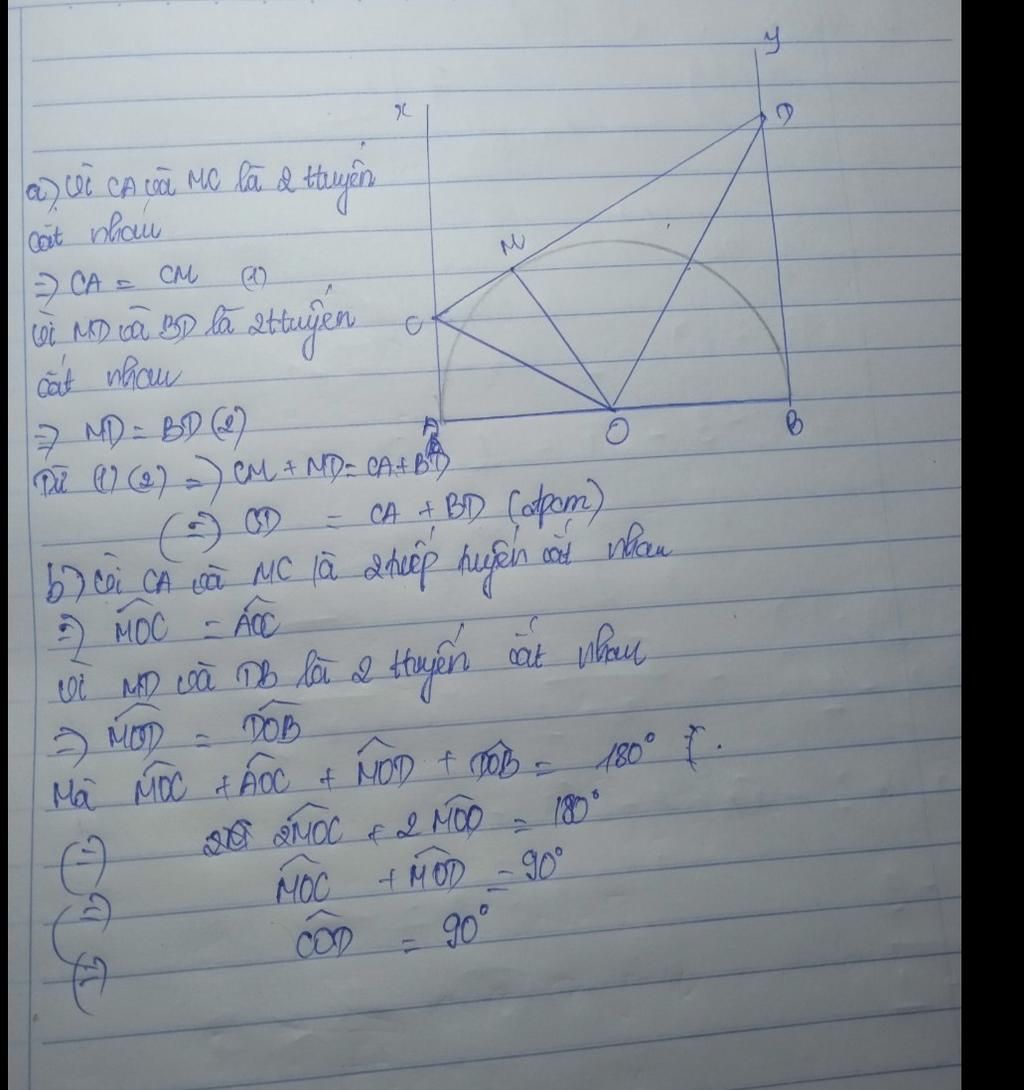 x
y
D
M
C
A
O
B
a) Vì CA và MC là 2 ttuyến
cắt nhau
=> CA = CM (1)
Vì MD và BD là 2 ttuyến
cắt nhau
=> MD = BD (2)
Từ (1) (2) => CM + MD = CA + BD
(=) CD = CA + BD (đpcm)
b) Vì CA và MC là 2 tiếp tuyến cắt nhau
=> M̂OC = ÂOC
Vì MD và DB là 2 ttuyến cắt nhau
=> M̂OD = D̂OB
Mà M̂OC + ÂOC + M̂OD + D̂OB = 180°
(=) 2M̂OC + 2M̂OD = 180°
(=) M̂OC + M̂OD = 90°
(=) ĈOD = 90°